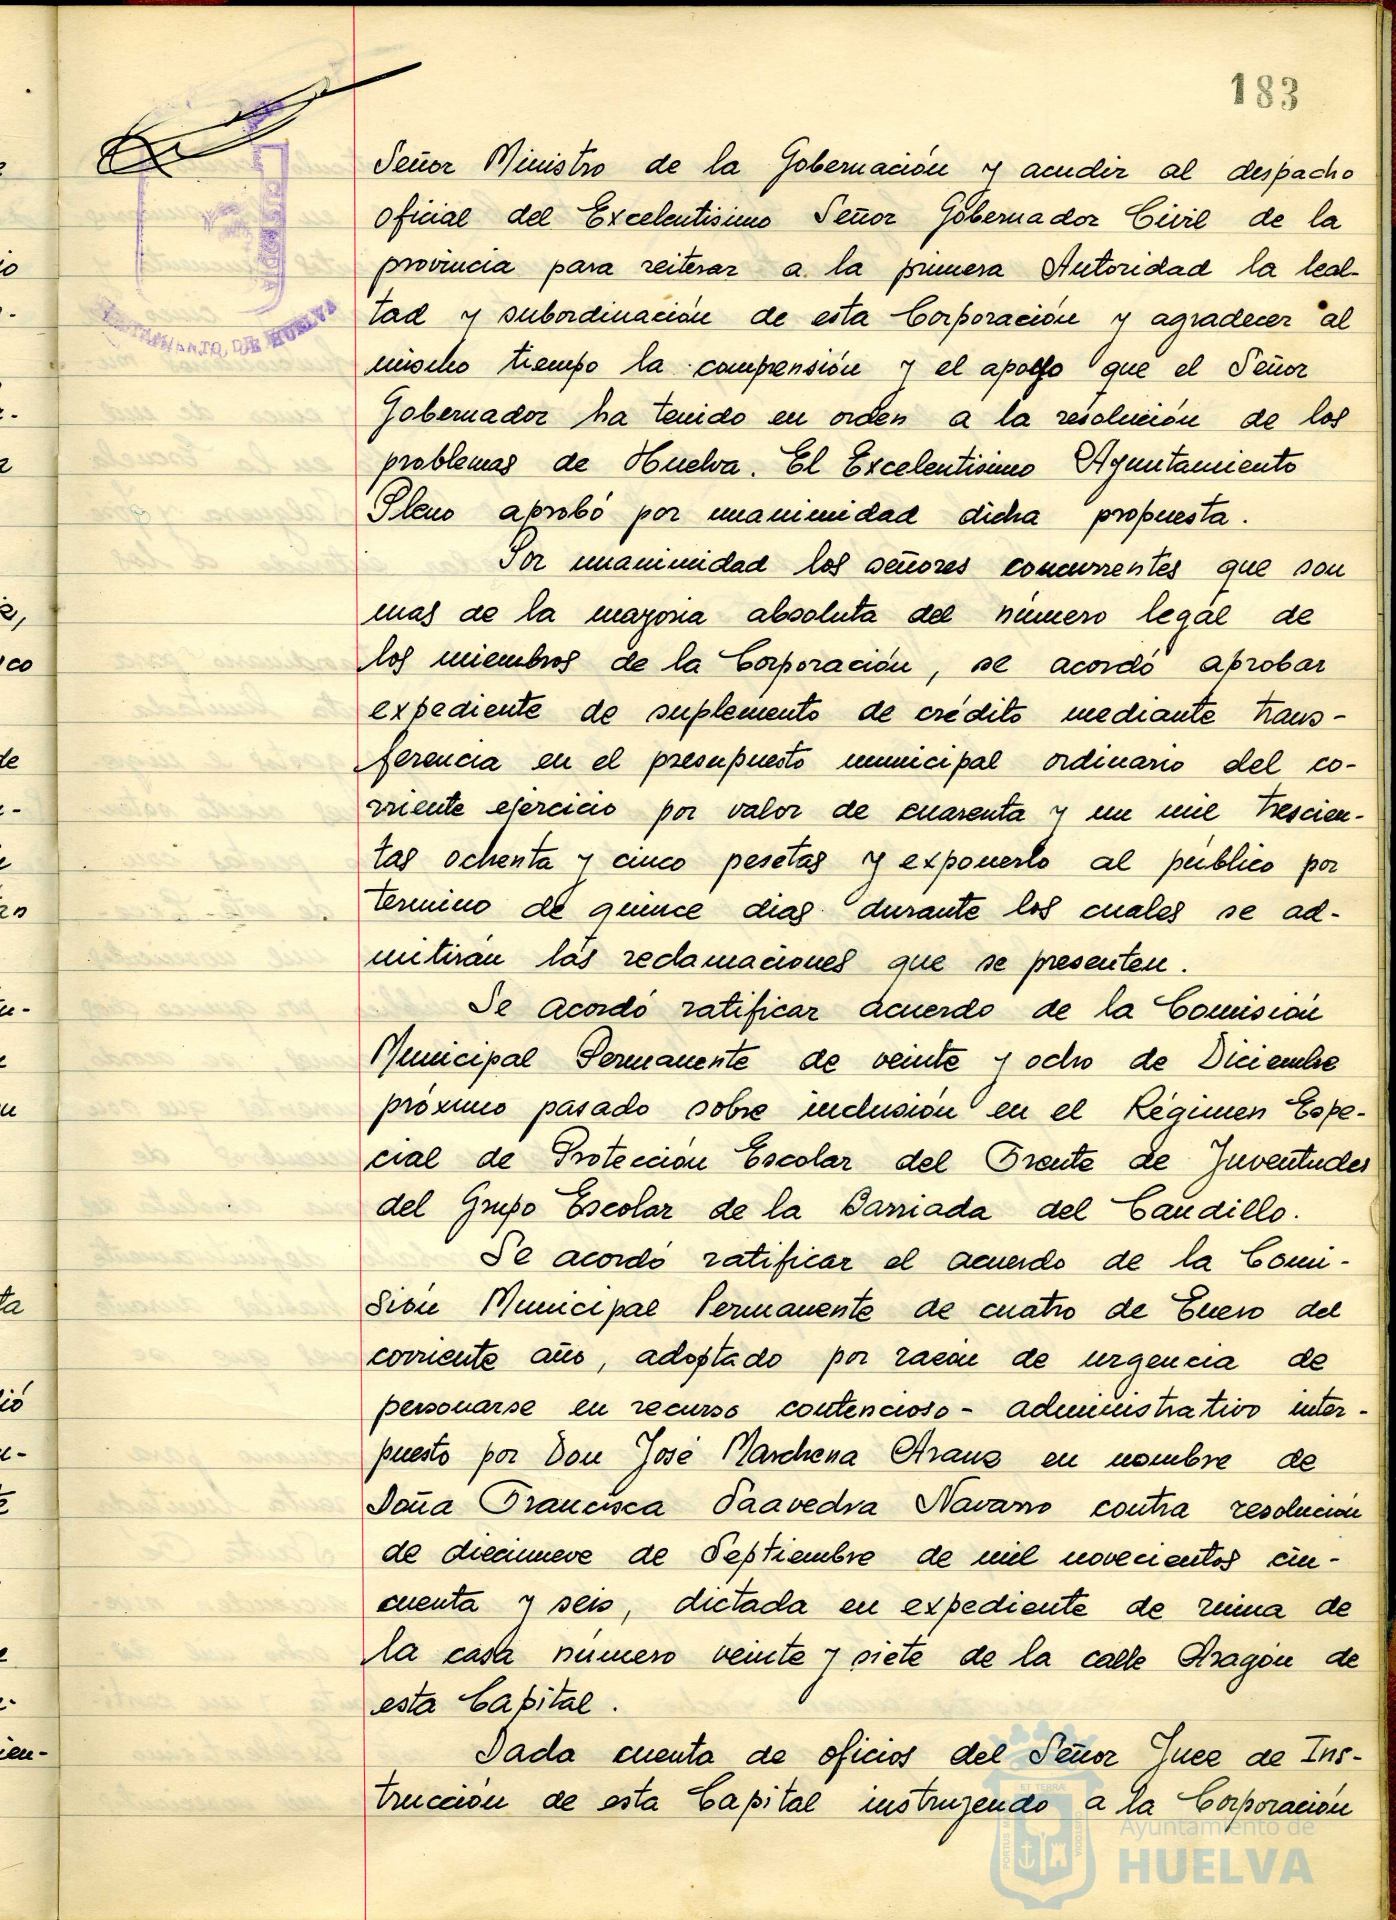 183
Señor Ministro de la Gobernación y acudir al despacho
oficial del Excelentisimo Señor Gobernador Civil de la
provincia para reiterar a la primera Autoridad la leal-
tad y subordinación de esta Corporación y agradecer al
mismo tiempo la comprensión y el apoyo que el Señor
Gobernador ha tenido en orden a la resolución de los
problemas de Huelva. El Excelentisimo Ayuntamiento
Pleno aprobó por unanimidad dicha propuesta.
Por unanimidad los señores concurrentes que son
mas de la mayoria absoluta del número legal de
los miembros de la Corporación, se acordó aprobar
expediente de suplemento de crédito mediante trans-
ferencia en el presupuesto municipal ordinario del co-
rriente ejercicio por valor de cuarenta y un mil trescien-
tas ochenta y cinco pesetas y exponerlo al público por
termino de quince dias durante los cuales se ad-
mitirán las reclamaciones que se presenten.
Se acordó ratificar acuerdo de la Comisión
Municipal Permanente de veinte y ocho de Diciembre
próximo pasado sobre inclusión en el Régimen Espe-
cial de Protección Escolar del Frente de Juventudes
del Grupo Escolar de la Barriada del Caudillo.
Se acordó ratificar el acuerdo de la Comi-
sión Municipal Permanente de cuatro de Enero del
corriente año, adoptado por razón de urgencia de
personarse en recurso contencioso-administrativo inter-
puesto por Don José Marchena Arauz en nombre de
Doña Francisca Saavedra Navarro contra resolución
de diecinueve de Septiembre de mil novecientos cin-
cuenta y seis, dictada en expediente de ruina de
la casa número veinte y siete de la calle Aragón de
esta Capital.
Dada cuenta de oficios del Señor Juez de Ins-
trucción de esta Capital instruyendo a la Corporación
CUSTODIA
AYUNTAMIENTO DE HUELVA
Ayuntamiento de
HUELVA